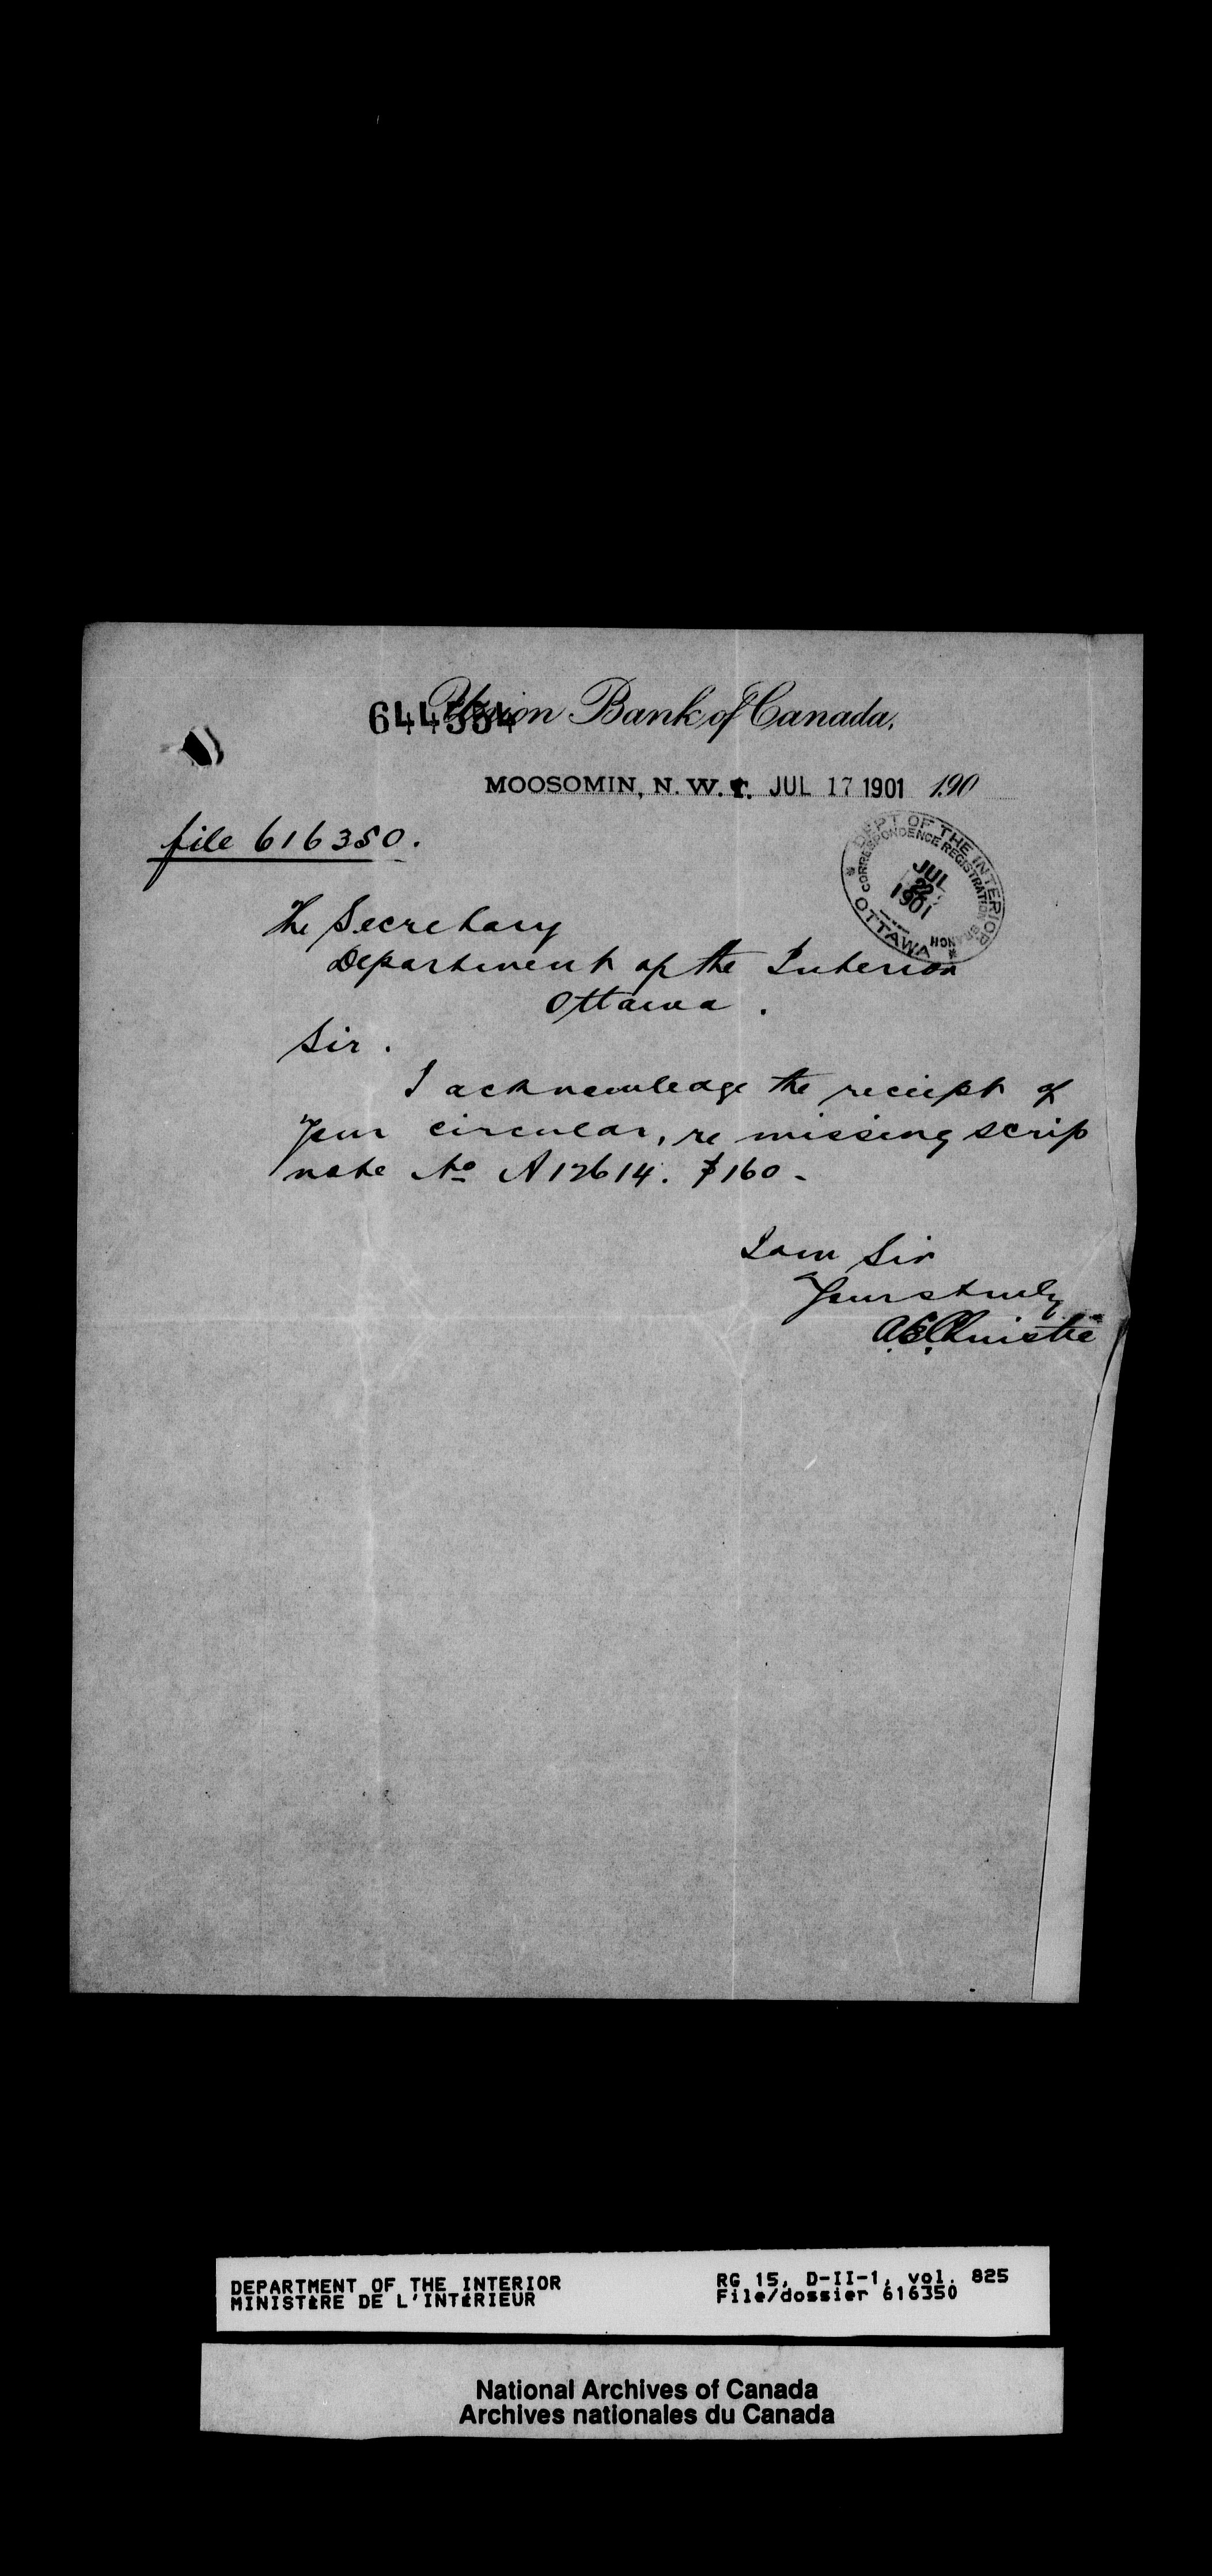 644554
Union Bank of Canada,
MOOSOMIN, N. W. T. JUL 17 1901 190
file 616350.
DEPT OF THE INTERIOR
CORRESPONDENCE REGISTRATION BRANCH
JUL
22
1901
OTTAWA
The Secretary
Department of the Interior
Ottawa.
Sir.
I acknowledge the reciept of
your circular, re missing scrip
note No A12614. $160-
I am Sir
Yours truly
A.E. Christie
DEPARTMENT OF THE INTERIOR
MINISTÈRE DE L'INTÉRIEUR
RG 15, D-II-1, vol. 825
File/dossier 616350
National Archives of Canada
Archives nationales du Canada